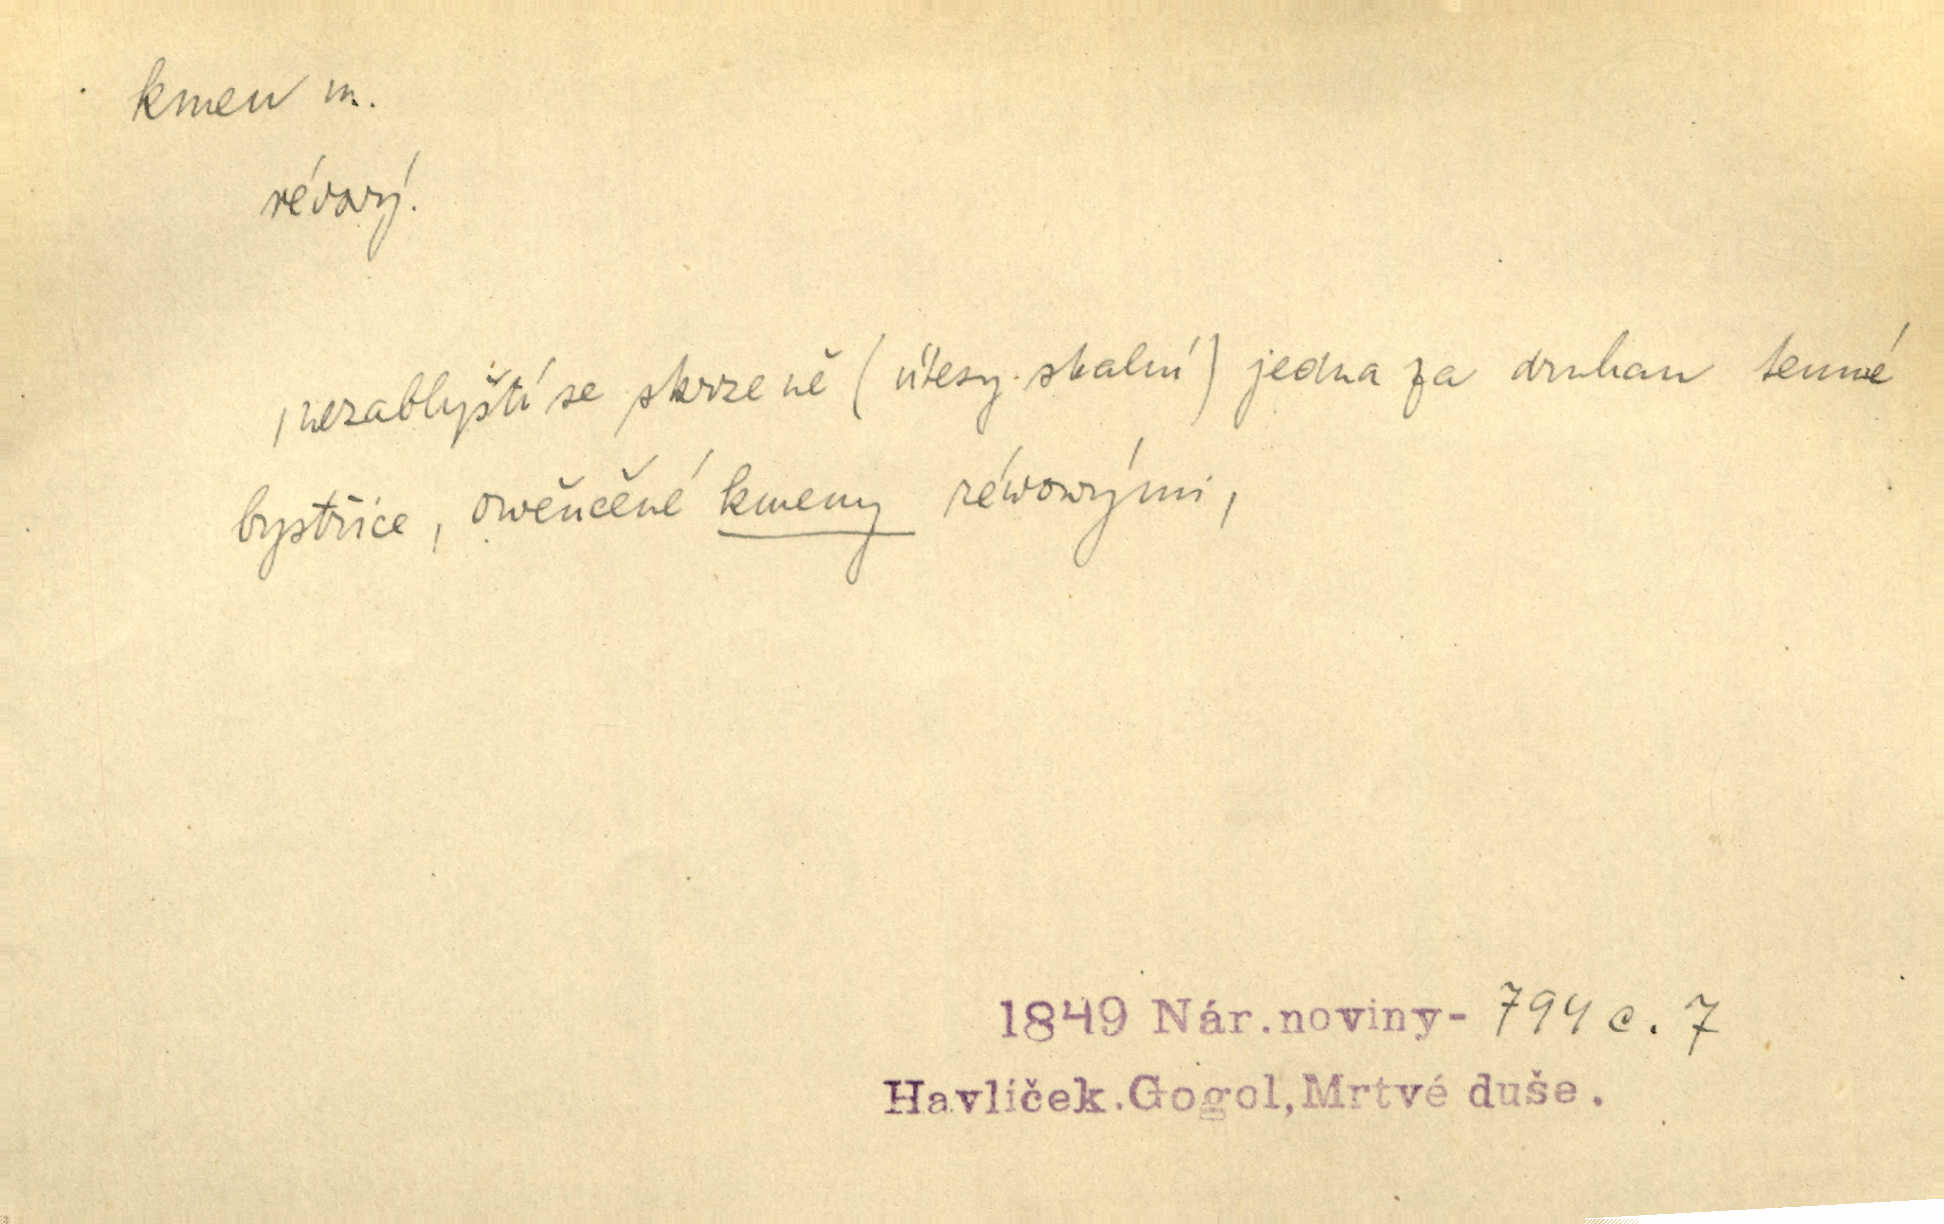 kmen m.
révový.
, nezablyští se skrze ně (útesy skalní) jedna za druhau temné
bystřice, owěnčěné kmeny réwowými,
1849 Nár.noviny- 794 c. 7
Havlíček.Gogol, Mrtvé duše.